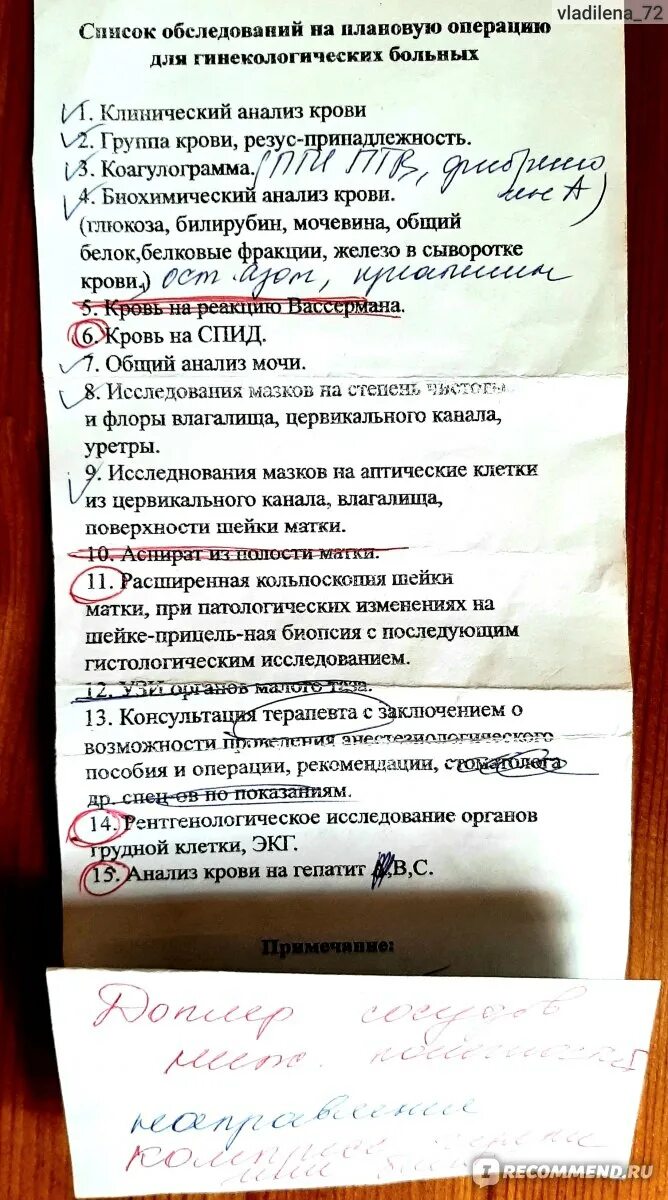 vladilena_72
Список обследований на плановую операцию
для гинекологических больных
1. Клинический анализ крови
2. Группа крови, резус-принадлежность.
3. Коагулограмма. (ПТИ ПТВ, фибрино
4. Биохимический анализ крови. ген А)
(глюкоза, билирубин, мочевина, общий
белок,белковые фракции, железо в сыворотке
крови,) ост азот, креатинин
5. Кровь на реакцию Вассермана.
6. Кровь на СПИД.
7. Общий анализ мочи.
8. Исследования мазков на степень чистоты
и флоры влагалища, цервикального канала,
уретры.
9. Исследнования мазков на аптические клетки
из цервикального канала, влагалища,
поверхности шейки матки.
10. Аспират из полости матки.
11. Расширенная кольпоскопия шейки
матки, при патологических изменениях на
шейке-прицель-ная биопсия с последующим
гистологическим исследованием.
12. УЗИ органов малого таза.
13. Консультация терапевта с заключением о
возможности проведения анестезиологического
пособия и операции, рекомендации, стоматолога
др. спец-ов по показаниям.
14. Рентгенологическое исследование органов
грудной клетки, ЭКГ.
15. Анализ крови на гепатит А,В,С.
Примечание:
Доплер сосудов
ниж.
направление
IRECOMMEND.RU